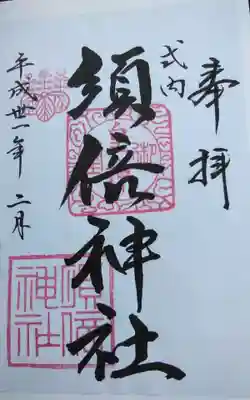 奉拝
式内
須倍神社
平成卅一年 二月
須倍神社